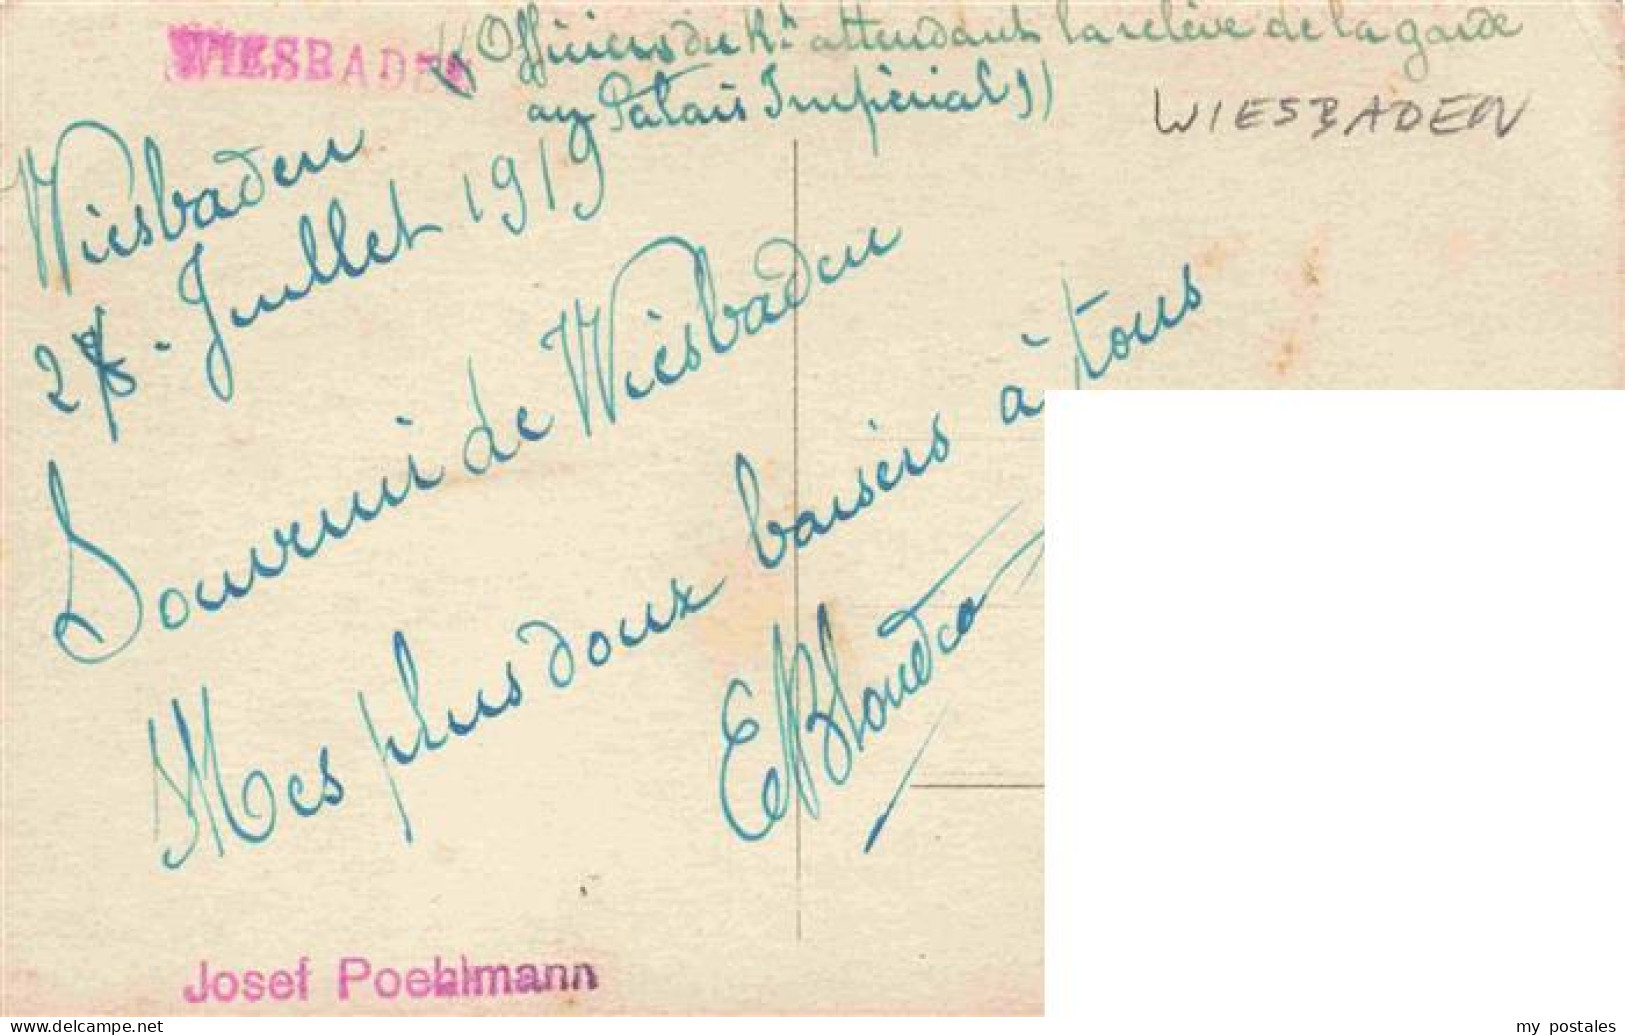 WIESBADEN
(( Officiers du Rt attendant la relève de la garde
au Palais Impérial ))
WIESBADEN
Wiesbaden
28 - Juillet 1919
Souvenir de Wiesbaden
Mes plus doux baisers à tous
Josef Poehlmann
www.delcampe.net
my_postales